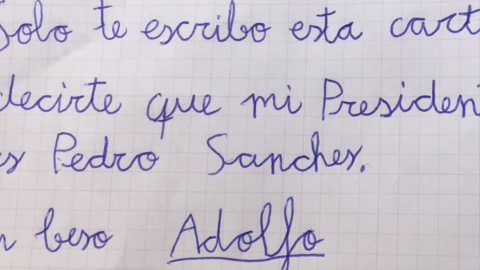 Solo te escribo esta cart
decirte que mi Presiden
es Pedro Sanches.
n beso Adolfo